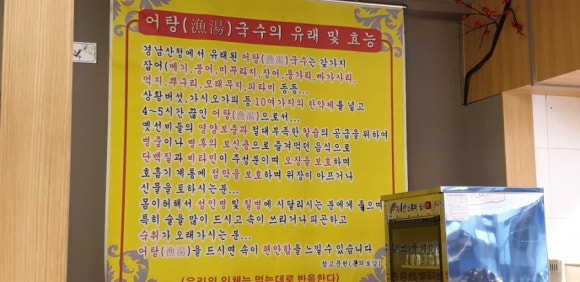 어탕(漁湯)국수의 유래 및 효능
경남산청에서 유래된 어탕(漁湯)국수는 갖가지
잡어(메기, 붕어, 미꾸라지, 잉어, 뚱가리, 빠가사리,
꺽지, 뿌구리, 모래무지, 피라미 등등...
상황버섯, 가시오가피 등 10여가지의 한약재를 넣고
4~5시간 끓인 어탕(漁湯)으로서...
옛선비들의 영양보충과 절대부족한 칼슘의 공급을 위하여
병중이나 병후의 보신용으로 즐겨먹던 음식으로
단백질과 비타민이 주성분이며 오장을 보호하며
호흡기 계통에 점막을 보호하며 위장이 아프거나
신물을 토하시는분...
몸이허해서 성인병 및 질병에 시달리시는 분에게 좋으며
특히 술을 많이 드시고 속이 쓰리거나 피곤하고
숙취가 오래가시는 분...
어탕(漁湯)을 드시면 속이 편안함을 느낄수 있습니다
참고문헌
(우리의 인체는 먹는데로 반응한다)